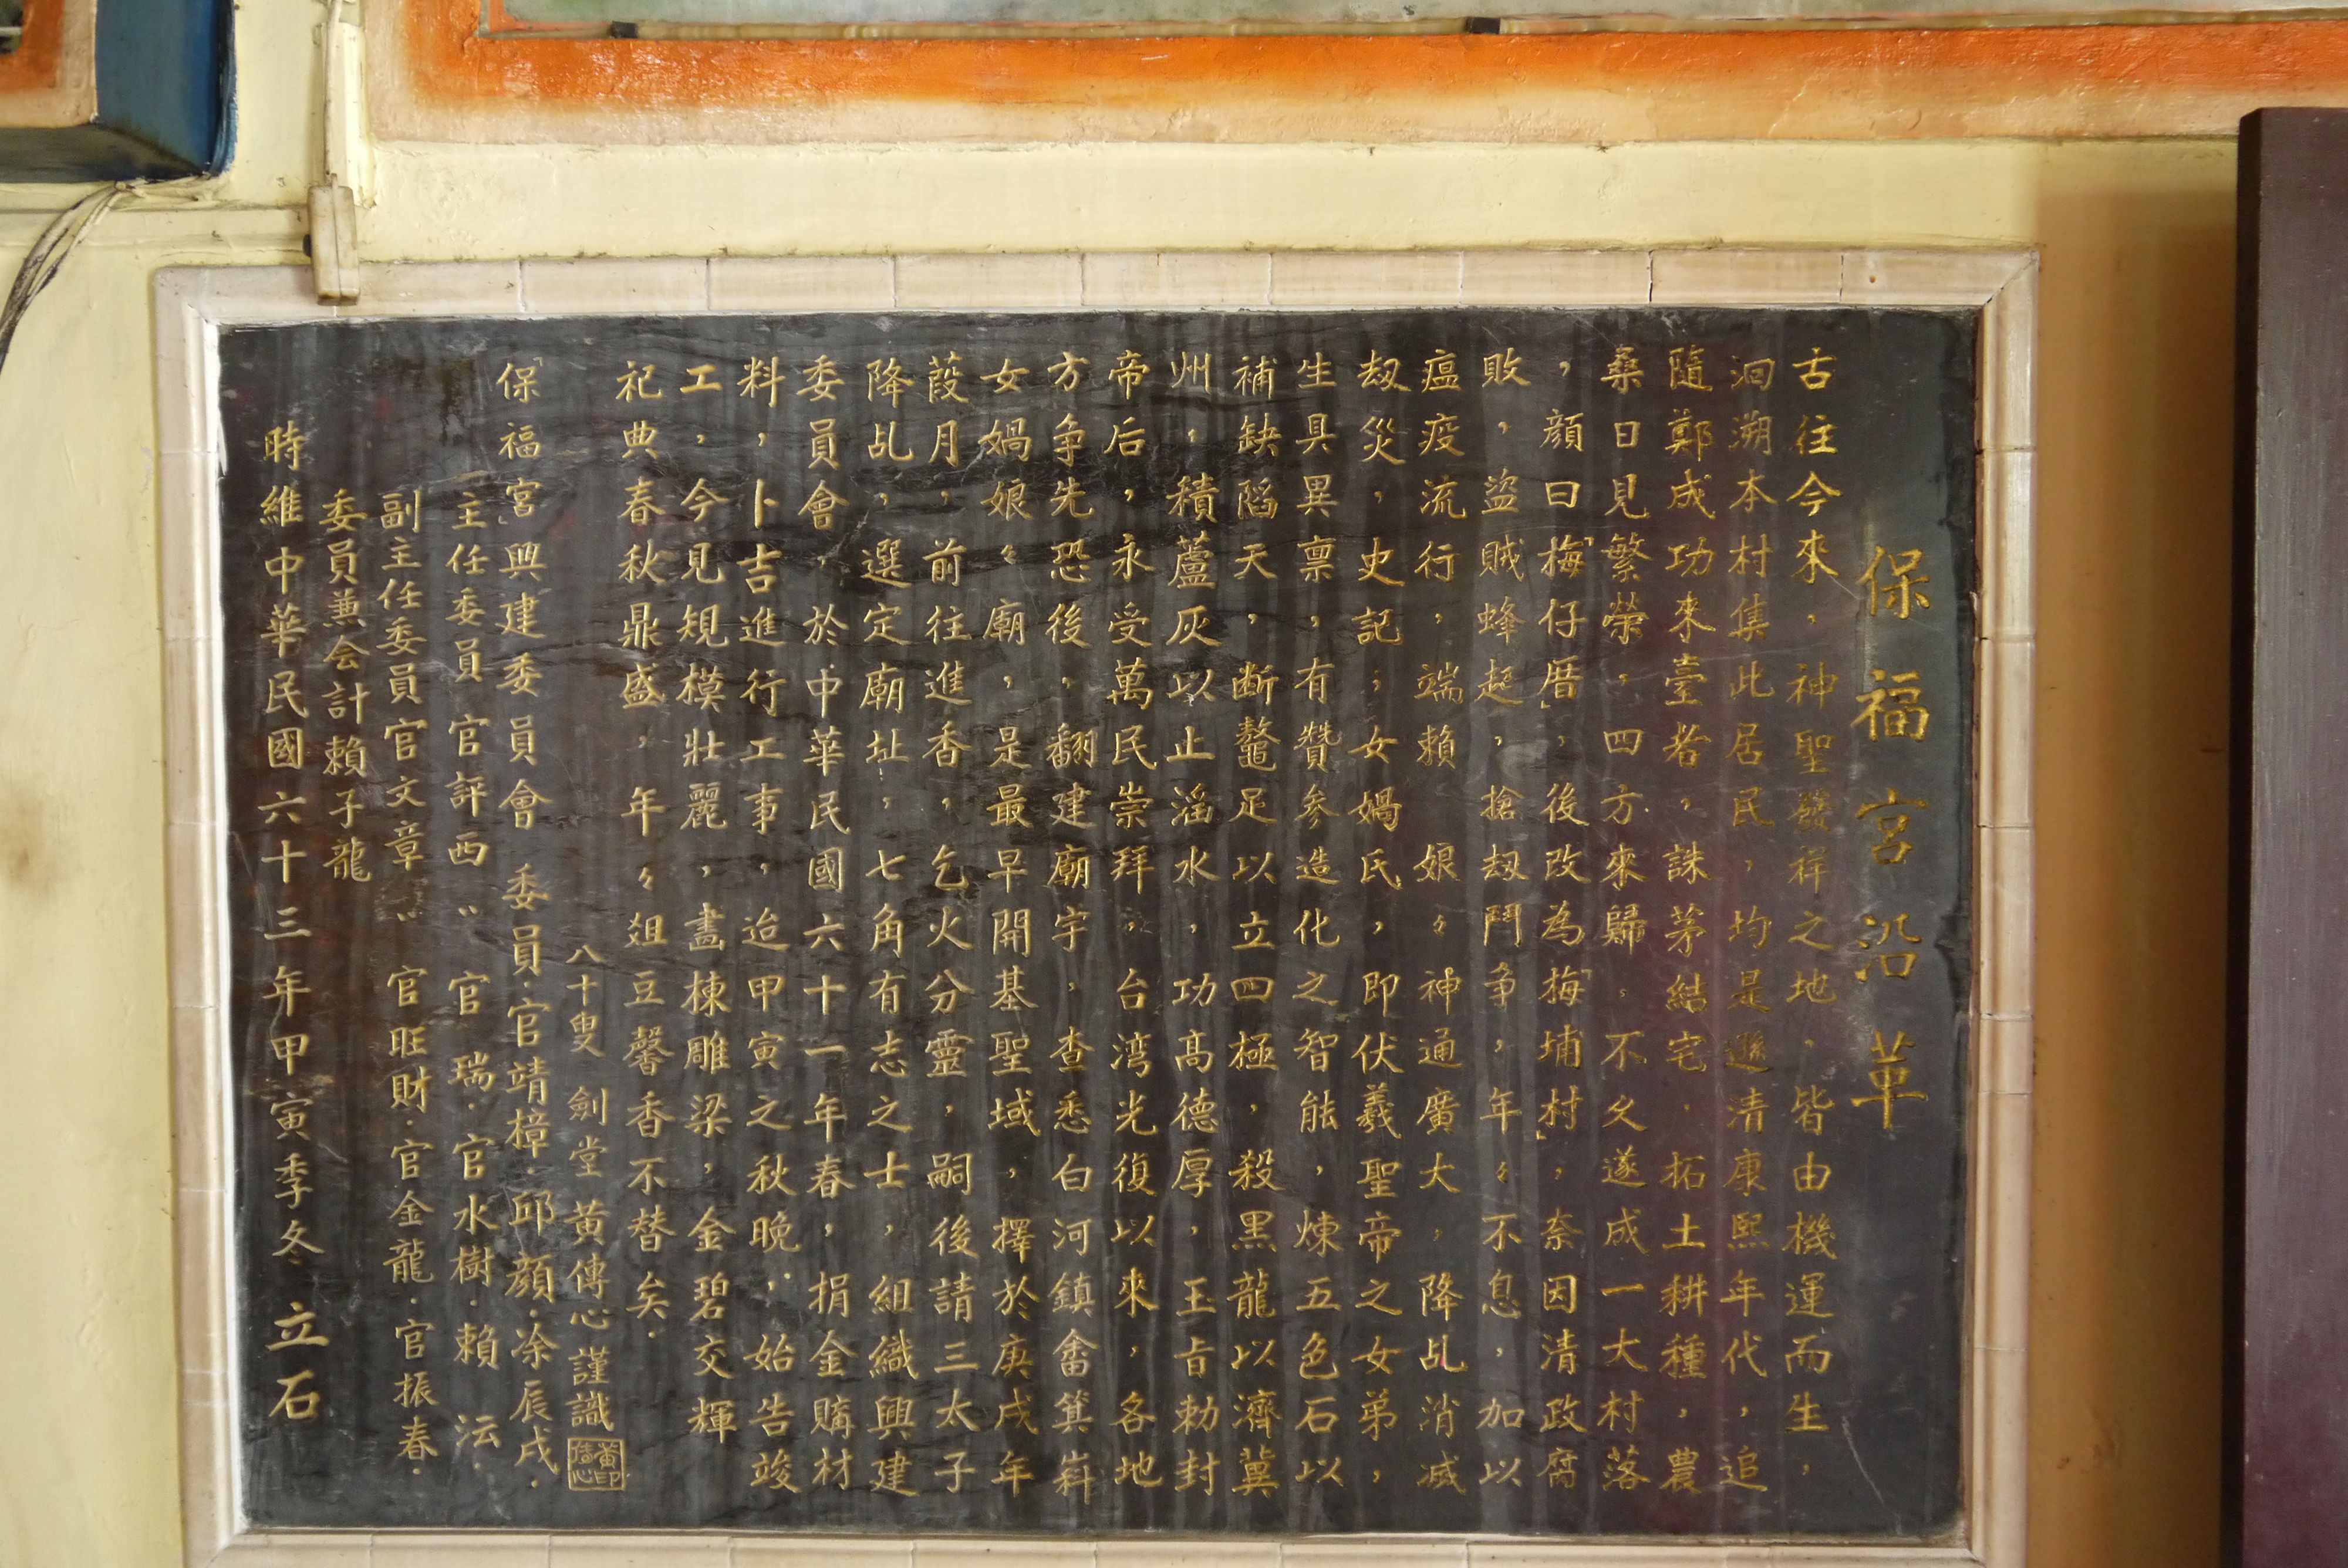 保福宮沿革
古往今來，神聖發祥之地，皆由機運而生，
洄溯本村集此居民，均是遜清康熙年代，追
隨鄭成功來臺者，誅茅結宅，拓土耕種，農
桑日見繁榮，四方來歸，不久遂成一大村落
，顏曰「梅仔厝」，後改為「梅埔村」，奈因清政腐
敗，盜賊蜂起，搶刼鬥争，年々不息，加以
瘟疫流行，端賴 娘々神通廣大，降乩消減
刼災，史記；女媧氏，即伏羲聖帝之女弟，
生具異禀，有贊參造化之智能，煉五色石以
補缺陷天，断鼇足以立四極，殺黑龍以濟冀
州，積蘆灰以止滔水，功高德厚，玉旨勅封
帝后，永受萬民崇拜。台湾光復以來，各地
方争先恐後，翻建廟宇，查悉白河鎮畚箕嵙
女媧娘々廟，是最早開基聖域，擇於庚戌年
葭月，前往進香，乞火分靈，嗣後請三太子
降乩，選定廟址，七角有志之士，組織興建
委員會，於中華民國六十一年春，捐金購材
料，卜吉進行工事，迨甲寅之秋晚，始告竣
工，今見規模壯麗，畵棟雕梁，金碧交輝
祀典春秋鼎盛，年々俎豆馨香不替矣．
八十叟 劍堂 黃傳心謹識 黃印傳心
「保福宮」興建委員會 委員．官靖樟．邱顏．涂辰戌．
主任委員 官評西 〃 官 瑞．官水樹．賴 沄．
副主任委員官文章 〃 官旺財．官金龍．官振春．
委員兼会計賴子龍
時維中華民國六十三年甲寅季冬 立石